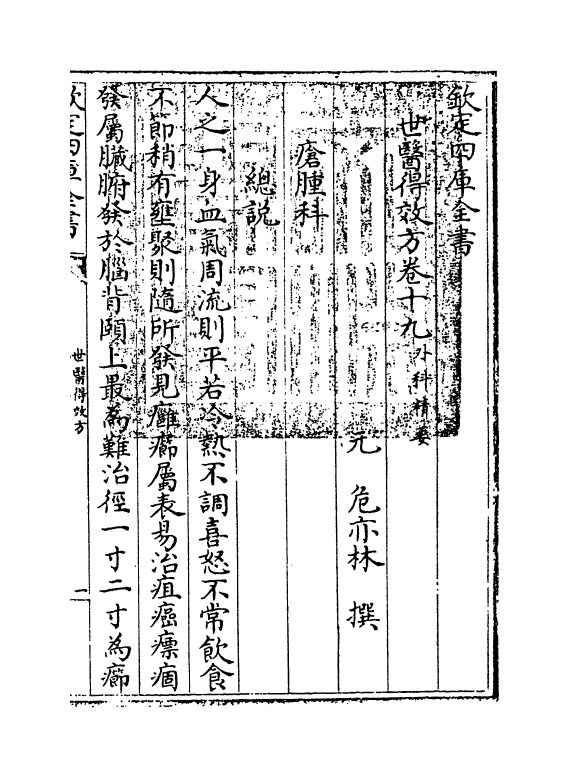 欽定四庫全書
世醫得效方卷十九 外科精要
元 危亦林 撰
瘡腫科
總說
人之一身血氣周流則平若冷熱不調喜怒不常飲食
不節稍有壅聚則隨所發見癰癤屬表易治疽癌瘭痼
發屬臟腑發於腦背頤上最為難治徑一寸二寸為癤
欽定四庫全書
世醫得效方
一